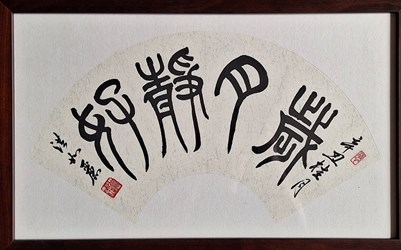 辛丑桂月
歲月靜好
麗